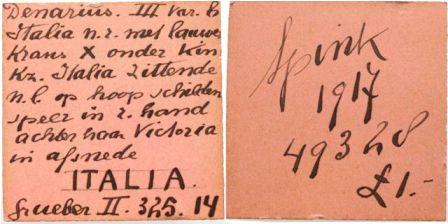 Denarius. III var. b
Italia n.r. met lauwer
Krans X onder Kin
Kz. Italia Zittende
n.l. op hoop schilden
speer in r. hand
achter haar Victoria
in afsnede
ITALIA.
Grueber II. 325. 14
Spink
1917
49328
£1.-